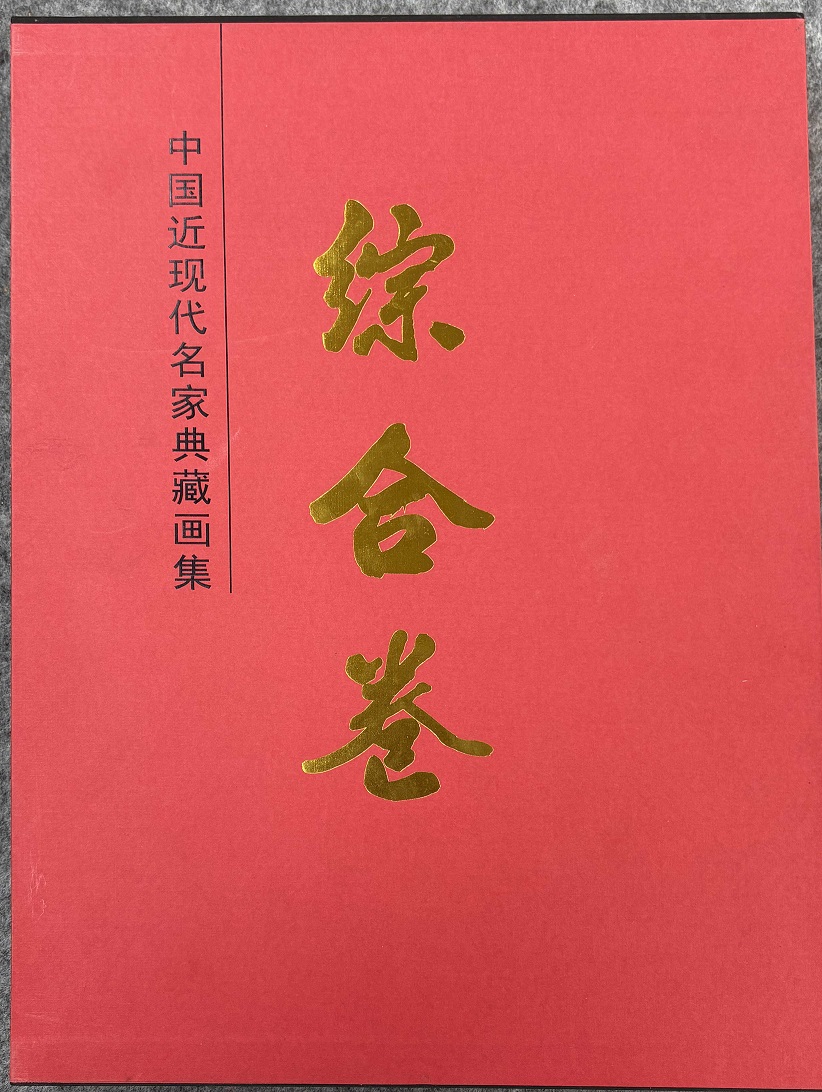 中国近现代名家典藏画集
综合卷